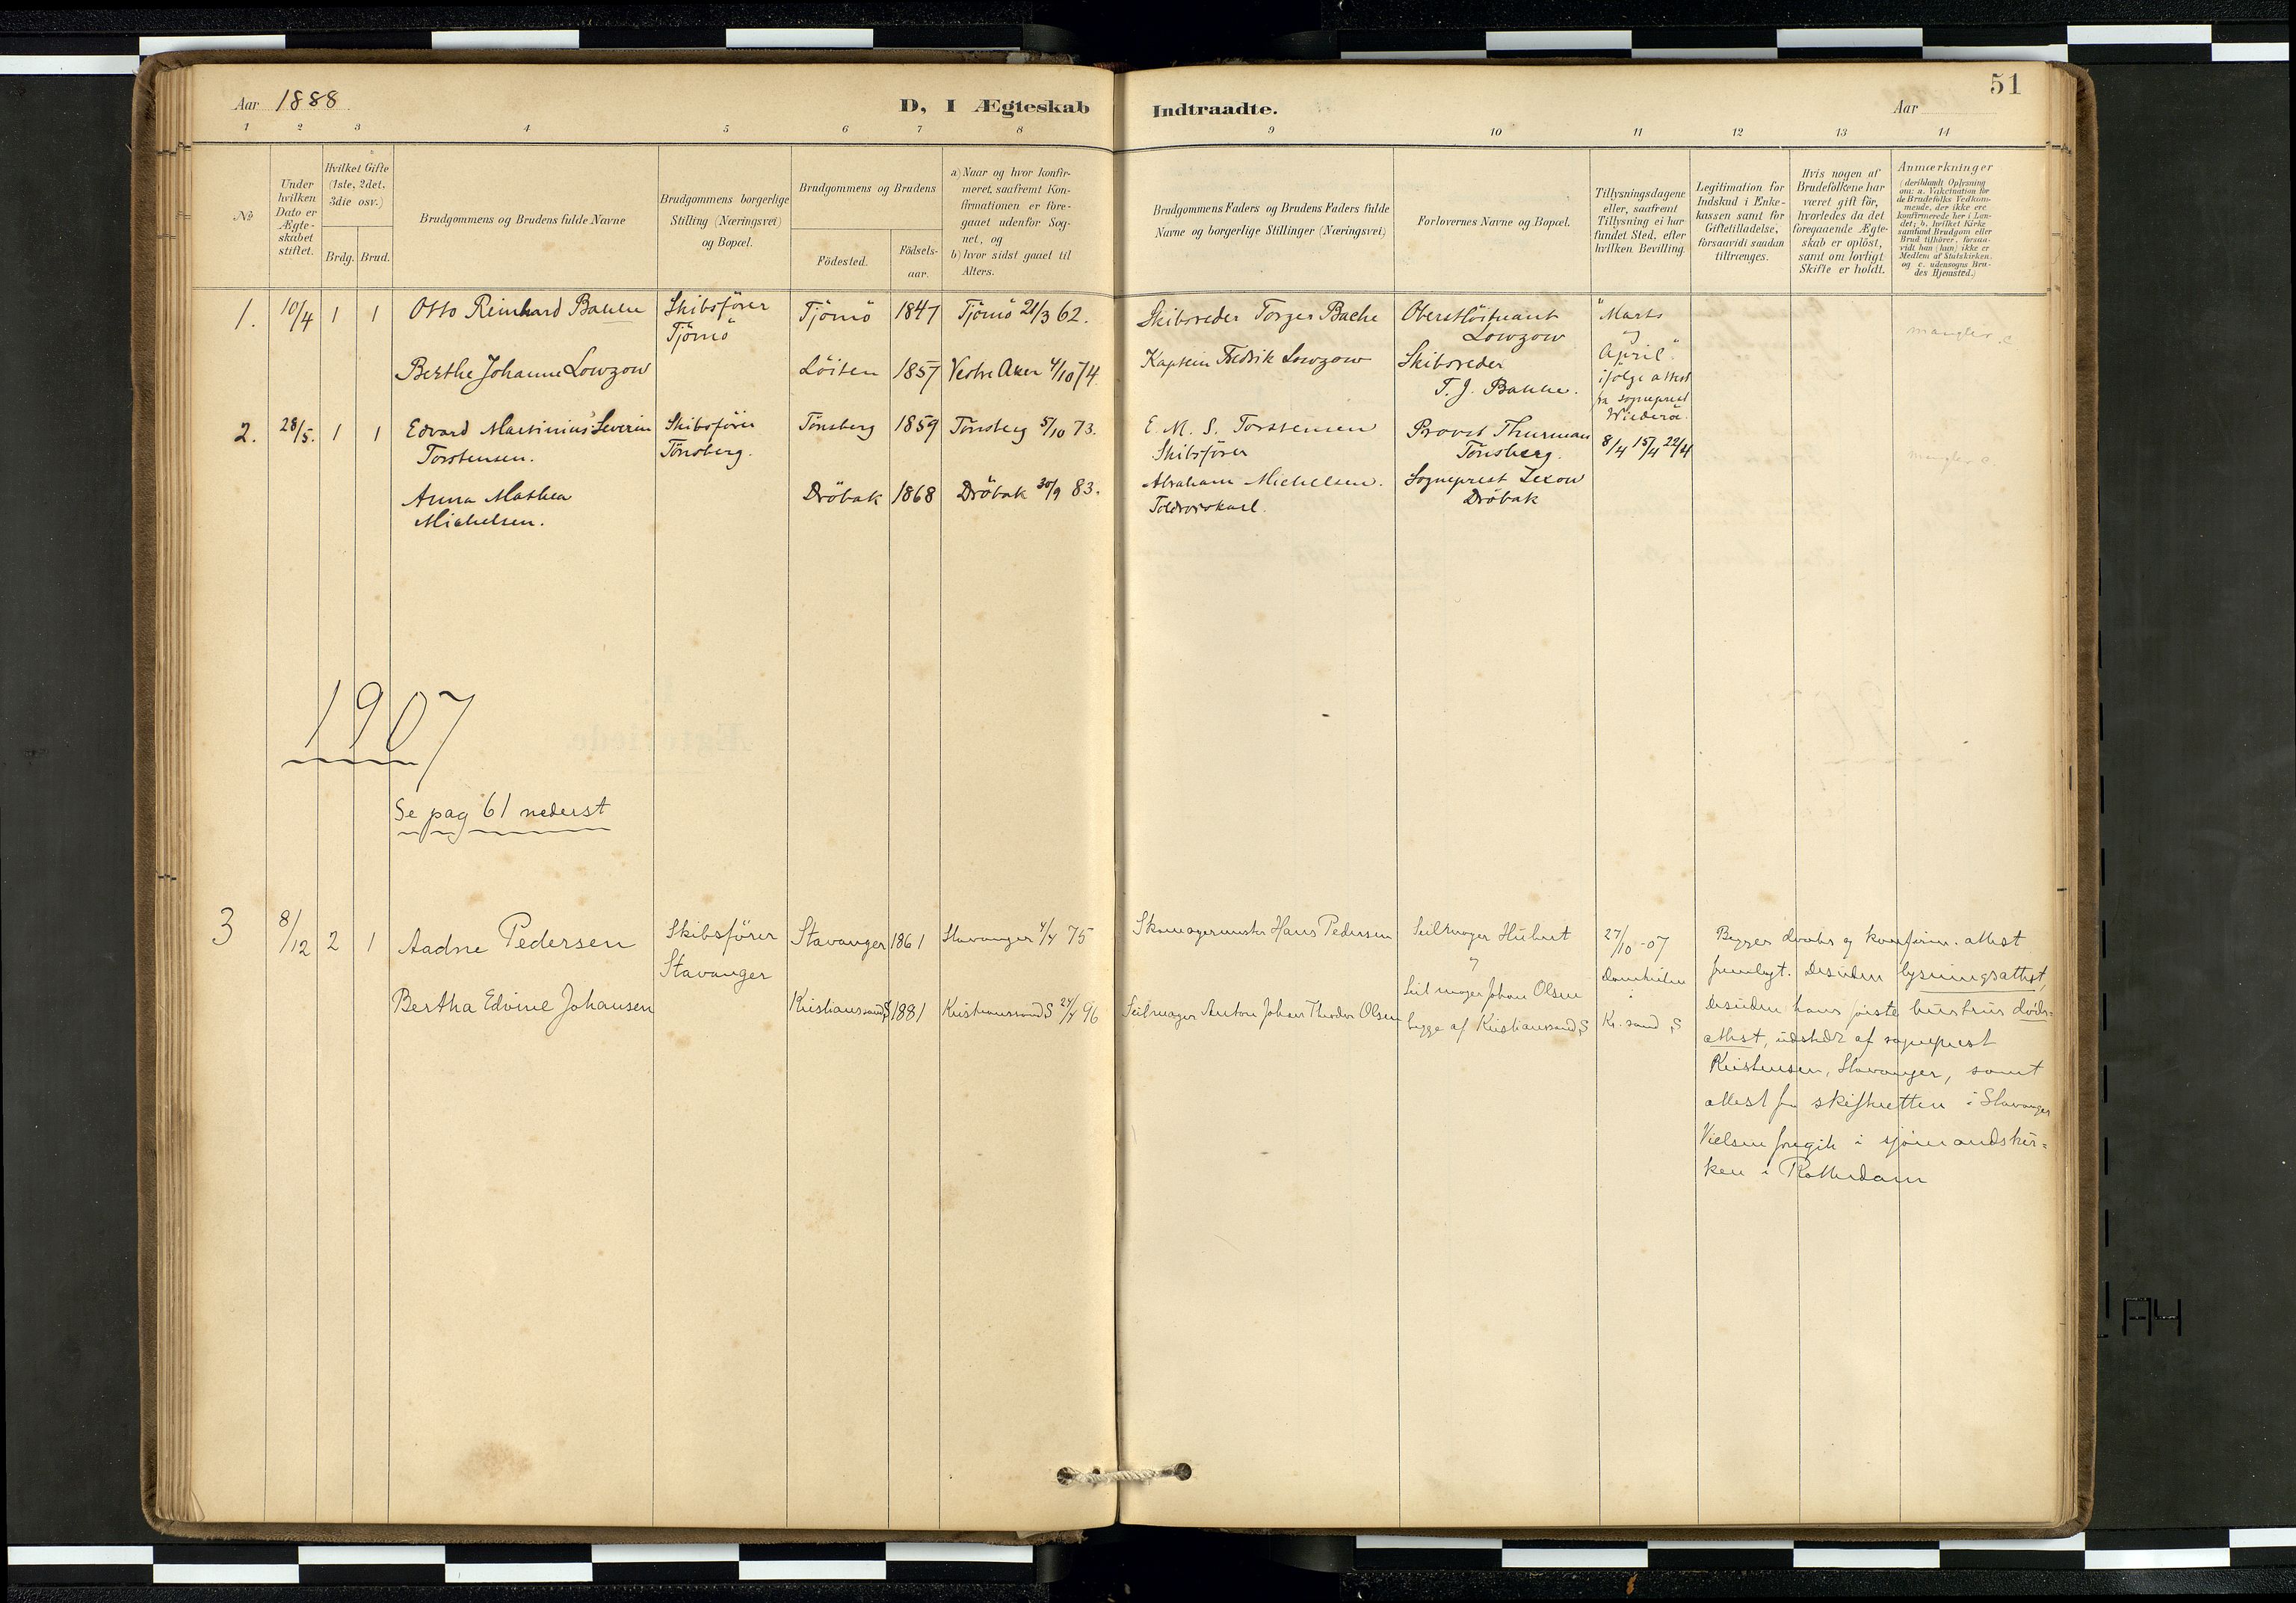 Aar 1888
D, I Ægteskab
Indtraadte.
Aar
51
1 2 3 4 5 6 7 8 9 10 11 12 13 14
No
Under hvilken Dato er Ægte-skabet stiftet.
Hvilket Gifte (1ste, 2det, 3die osv.)
Brdg. Brud.
Brudgommens og Brudens fulde Navne
Brudgommens borgerlige Stilling (Næringsvei) og Bopæl.
Brudgommens og Brudens
Födested.
Födsels-aar.
a) Naar og hvor konfir-meret, saafremt Kon-firmationen er fore-gaaet udenfor Sog-net, og
b) hvor sidst gaaet til Alters.
Brudgommens Faders og Brudens Faders fulde Navne og borgerlige Stillinger (Næringsvei)
Forlovernes Navne og Bopæl.
Tillysningsdagene eller, saafremt Tillysning ei har fundet Sted, efter hvilken Bevilling.
Legitimation for Indskud i Enke-kassen samt for Giftetilladelse, forsaavidt saadan tiltrænges.
Hvis nogen af Brudefolkene har været gift för, hvorledes da det foregaaende Ægte-skab er oplöst, samt om lovligt Skifte er holdt.
Anmærkninger
(deriblandt Oplysning om: a. Vakcination for de Brudefolks Vedkom-mende, der ikke ere konfirmerede her i Lan-det; b. hvilket Kirke samfund Brudgom eller Brud tilhörer, forsaa-vidt han (hun) ikke er Medlem af Statskirken. og c. udensogns Bru-des Hjemsted.)
1. 10/4 1 1 Otto Reinhard Bakke
Skibsförer
Tjömö
Tjömö 1847 Tjömö 21/3 62.
Skibsreder Torger Bache
Oberstlöitnant
Lowzow
"Marts
og
April".
ifölge attest
fra sogneprest
Wiederö.
mangler c
Berthe Johanne Lowzow
Löiten 1857 Vestre Aker 4/10 74.
Kaptein Fredrik Lowzow
Skibsreder
T. J. Bakke.
2. 28/5. 1 1 Edvard Martinius Severin
Torstensen.
Skibsförer
Tönsberg.
Tönsberg 1859 Tönsberg 5/10 73.
E. M. S. Torstensen
Skibsförer
Provst Thurman
Tönsberg.
8/4 15/4 22/4
mangler c.
Anna Mathea
Michelsen.
Dröbak 1868 Dröbak 30/9 83.
Abraham Michelsen.
Toldrorskarl.
Sogneprest Lexow
Dröbak
1907
Se pag 61 nederst
3 8/12 2 1 Aadne Pedersen
Skibsförer
Stavanger
Stavanger 1861 Stavanger 4/4 75
Skomagermester Hans Pedersen
Seilmager Hubert
og
27/10 -07
Domkirken
i
Kr. sand S
Bertha Edvine Johansen
Kristianssand S 1881 Kristianssand S 24/4 96
Seilmager Anton Johan Theodor Olsen
Seilmager Johan Olsen
begge af Kristianssand S
Begges daabs og konfirm. attest
fremlagt. Desuden lysningsattest,
desuden hans første hustrus døds=
attest, udstedt af sogneprest
Kristensen, Stavanger, samt
attest fra skifteretten i Stavanger
Vielsen foregik i sjömandskir=
ken i Rotterdam